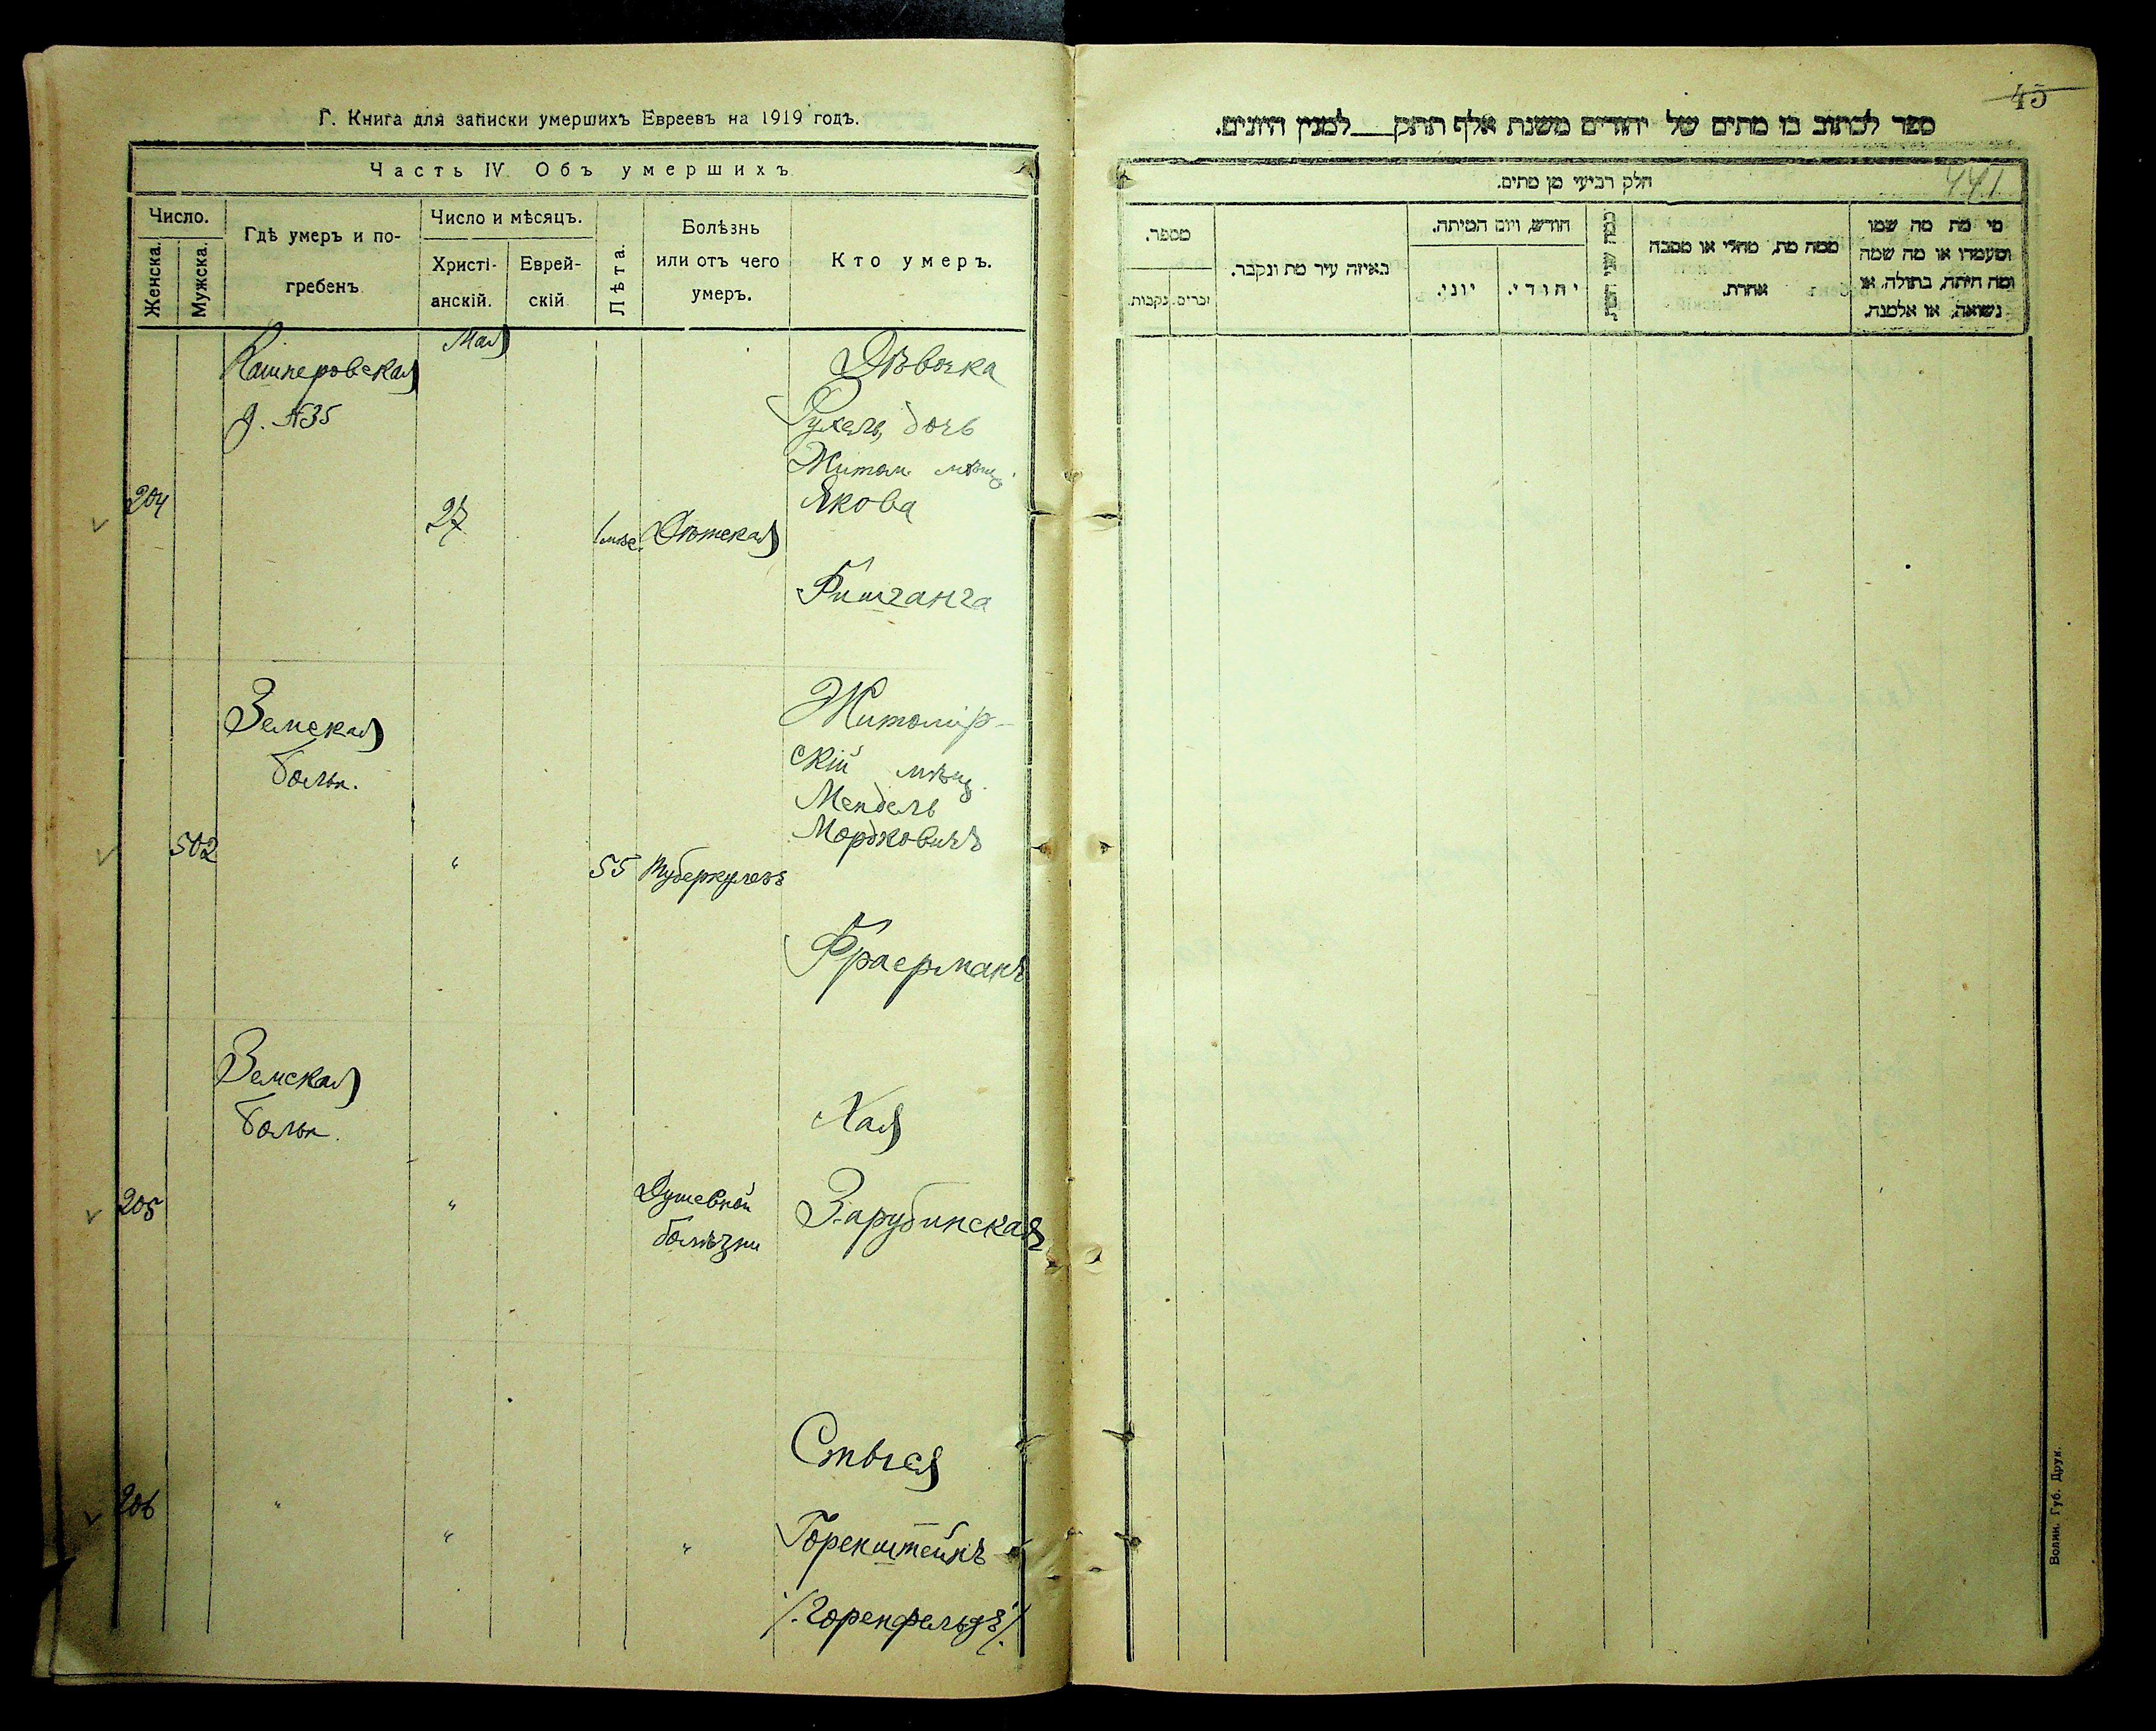 Г. Книга для записки умершихъ Евреевъ на 1919 годъ.
Часть IV. Объ умершихъ
Число.
Женска.
Мужска.
Гдѣ умеръ и по-
гребенъ
Число и мѣсяцъ.
Христі-
анскій.
Еврей-
скій
Лѣта.
Болѣзнь
или отъ чего
умеръ.
Кто умеръ.
Кашперовская
д. №35
Мая
204
27
1 мѣс.
Дѣтская
Дѣвочка
Рухель, дочь
Житом. мѣщ.
Якова
Фишганга
Земская
больн.
502
"
55
Туберкулезъ
Житомір-
скій мѣщ.
Мендель
Мордковичъ
Фраерманъ
Земская
больн.
205
"
Душевной
болѣзни
Хая
Зарубинская
206
"
"
"
Стыся
Горенштейнъ
/.Горенфельдъ/.
45
441
ספר לכתוב בו מתים של יהודים משנת אלף תתק___למנין היונים.
חלק רביעי מן מתים.
מספר.
זכרים.
נקבות.
באיזה עיר מת ונקבר.
חודש, ויום המיתה.
יוני.
יהודי.
ממה מת, מחלי או מסבה
אחרת.
מי מת מה שמו
ומעמדו או מה שמה
ומה היתה, בתולה, או
נשואה, או אלמנה.
Волин. Губ. Друк.